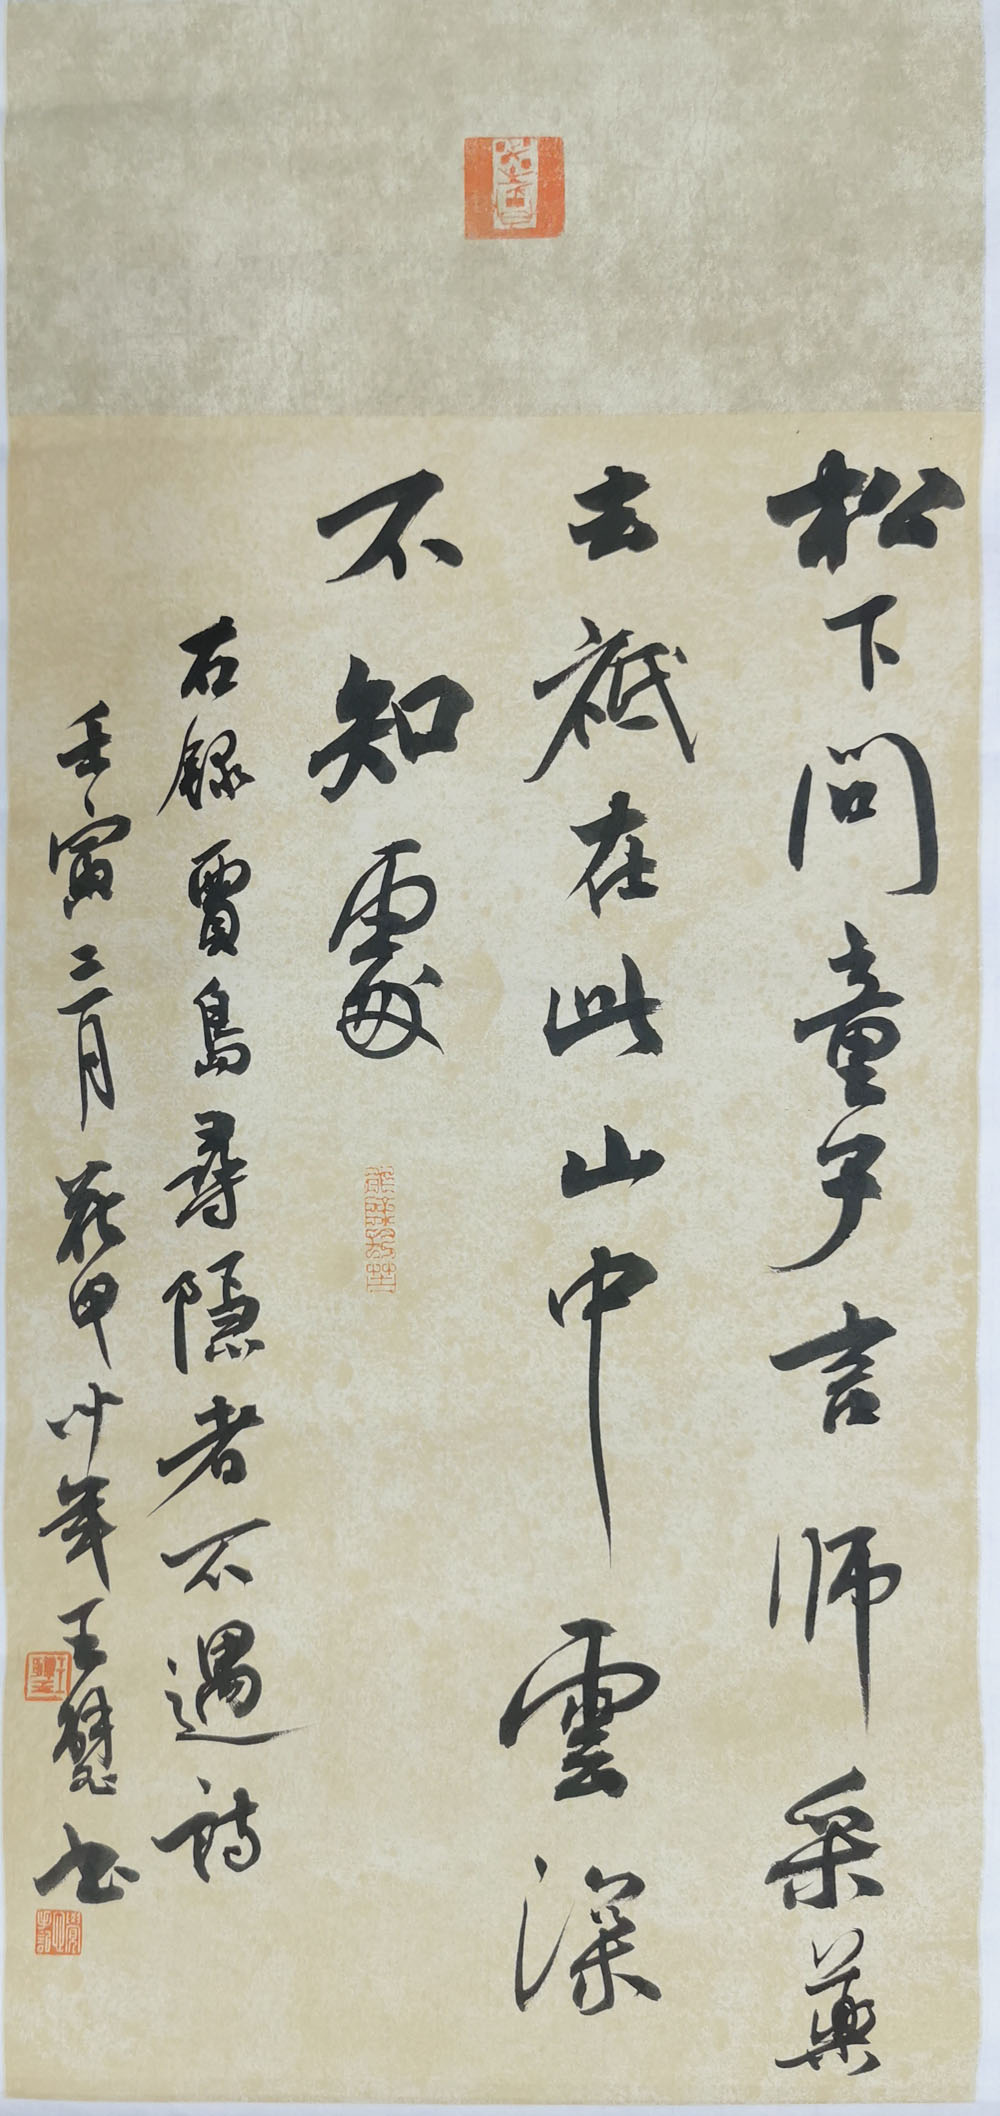 松下问童子言师采藥
去祗在此山中雲深
不知處
右錄賈島尋隱者不遇詩
壬寅二月花甲卅年王慧书